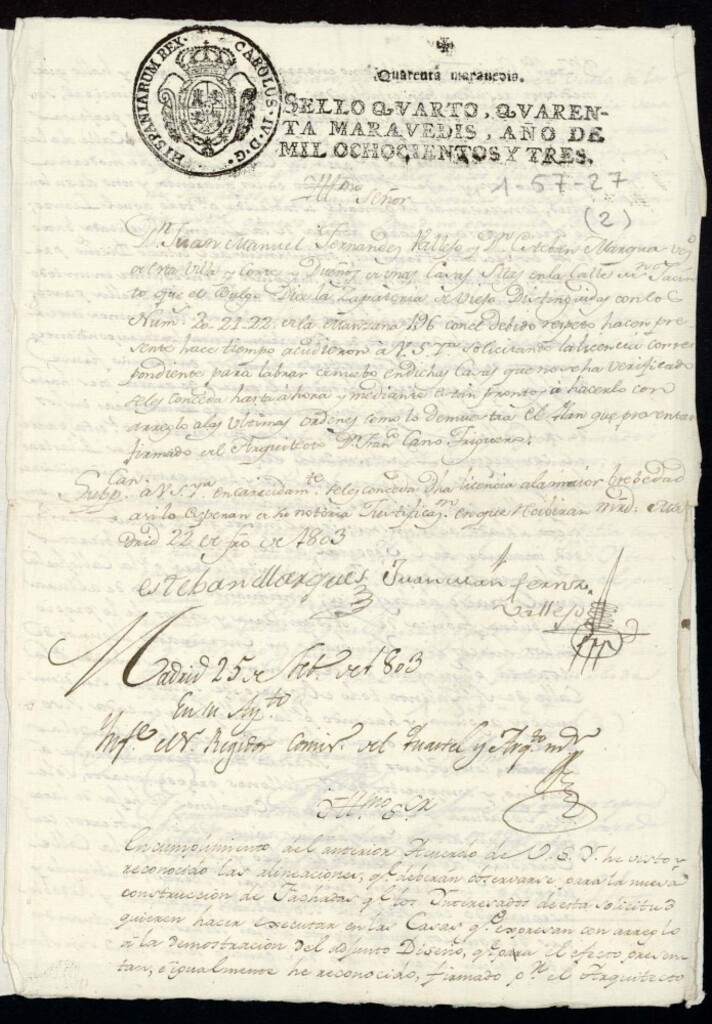 HISPANIARUM REX. CAROLUS. IV. D. G.
Quarenta maravedis.
SELLO QVARTO, QVAREN-
TA MARAVEDIS, AÑO DE
MIL OCHOCIENTOS Y TRES.
1-57-27
(2)
Illmo Señor
Dn. Juan Manuel Fernandez Vallejo y Dn. Esteban Marques
de esta Villa y Corte y Dueños de unas Casas Sitas en la Calle de Sn. Jacin
to que el Bulgo Dia la Zapateria de Viejo Distinguidas con los
Num. 20-21-22 de la Manzana 196 con el debido respeto hacen pre
sente hace tiempo acudieron à V.S.Y. solicitando la licencia corres
pondiente para labrar de nuebo en dichas Casas que no se ha verificado
seles conceda hasta ahora y mediante a tan pronto à hacerlo con
arreglo a las ultimas ordenes como lo demuestra el Plan que presentan
firmado del Arquitecto Dn. Franco. Cano Trigueros.
Suppcan. a V.S.Y. encarecidamte. seles conceda dha licencia a la maior brebedad
asi lo esperan de la notoria Justificaon. en que Recibiran mrd. Ma
drid 22 de de 1803
esteban Marques Juan Man Fernz.
Vallejo
Madrid 25 de Sbre. de 1803
En su Aytto.
Ynfe. el Sr. Regidor Comiso. del Quartel y Arqto. mor
Illmo Sr
En cumplimiento del anterior Acuerdo de V.S.Y. he visto y
reconocido las alineaciones, qe. deberan observarse para la nueva
construccion de Fachadas qe. los Ynteresados de esta solicitud
quieren hacer executar en las Casas qe. expresan con arreglo
à la demostracion del adjunto Diseño, qe. para el efecto presen
tan, è igualmente he reconocido, firmado pr. el Arquitecto